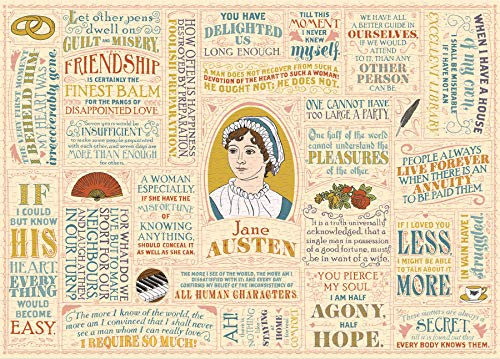 Let other pens
dwell on
GUILT AND MISERY.
FRIENDSHIP
IS CERTAINLY THE
FINEST BALM
FOR THE PANGS OF
DISAPPOINTED LOVE.
THE VERY FIRST MOMENT
I BEHELD HIM,
MY HEART WAS
irrevocably gone.
Seven years would be
INSUFFICIENT
to make some people acquainted
with each other, and seven days are
MORE THAN ENOUGH
for others.
HOW OFTEN IS HAPPINESS
DESTROYED BY PREPARATION,
FOOLISH PREPARATION.
YOU HAVE
DELIGHTED
US
LONG ENOUGH.
TILL THIS
MOMENT
I NEVER
KNEW
myself.
A MAN DOES NOT RECOVER FROM SUCH A
DEVOTION OF THE HEART TO SUCH A WOMAN!
HE OUGHT NOT; HE DOES NOT.
WE HAVE ALL
A BETTER GUIDE IN
OURSELVES,
IF WE WOULD
ATTEND
TO IT, THAN ANY
OTHER
PERSON
CAN BE.
WHEN I HAVE A HOUSE
of my own,
I SHALL BE MISERABLE
IF I HAVE NOT AN
EXCELLENT
ONE CANNOT HAVE
TOO LARGE A PARTY.
One half of the world
cannot understand the
PLEASURES
of the other.
PEOPLE ALWAYS
LIVE FOREVER
WHEN THERE IS AN
ANNUITY
TO BE PAID THEM.
Jane
AUSTEN
IF
I COULD
BUT KNOW
HIS
HEART,
EVERY
THING
WOULD
BECOME
EASY.
FOR WHAT DO WE
LIVE, BUT TO MAKE
SPORT FOR OUR
NEIGHBOURS,
AND LAUGH AT THEM
IN OUR TURN?
A WOMAN
ESPECIALLY,
IF SHE HAVE THE
MISFORTUNE
OF
KNOWING
ANYTHING,
SHOULD CONCEAL IT
AS WELL AS SHE CAN.
It is a truth universally
acknowledged, that a
single man in possession
of a good fortune, must
be in want of a wife.
IF I LOVED YOU
LESS,
I MIGHT BE ABLE
TO TALK ABOUT IT
MORE
THE MORE I SEE OF THE WORLD, THE MORE AM I
DISSATISFIED WITH IT; AND EVERY DAY
CONFIRMS MY BELIEF OF THE INCONSISTENCY OF
ALL HUMAN CHARACTERS
The more I know of the world, the
more am I convinced that I shall never
see a man whom I can really love.
I REQUIRE SO MUCH!
AH!
THERE IS
NOTHING
LIKE
STAYING
HOME
FOR REAL
COMFORT.
YOU PIERCE
MY SOUL.
I AM HALF
AGONY,
HALF
HOPE.
These matters are always a
SECRET,
till it is found out that
EVERY BODY KNOWS THEM.